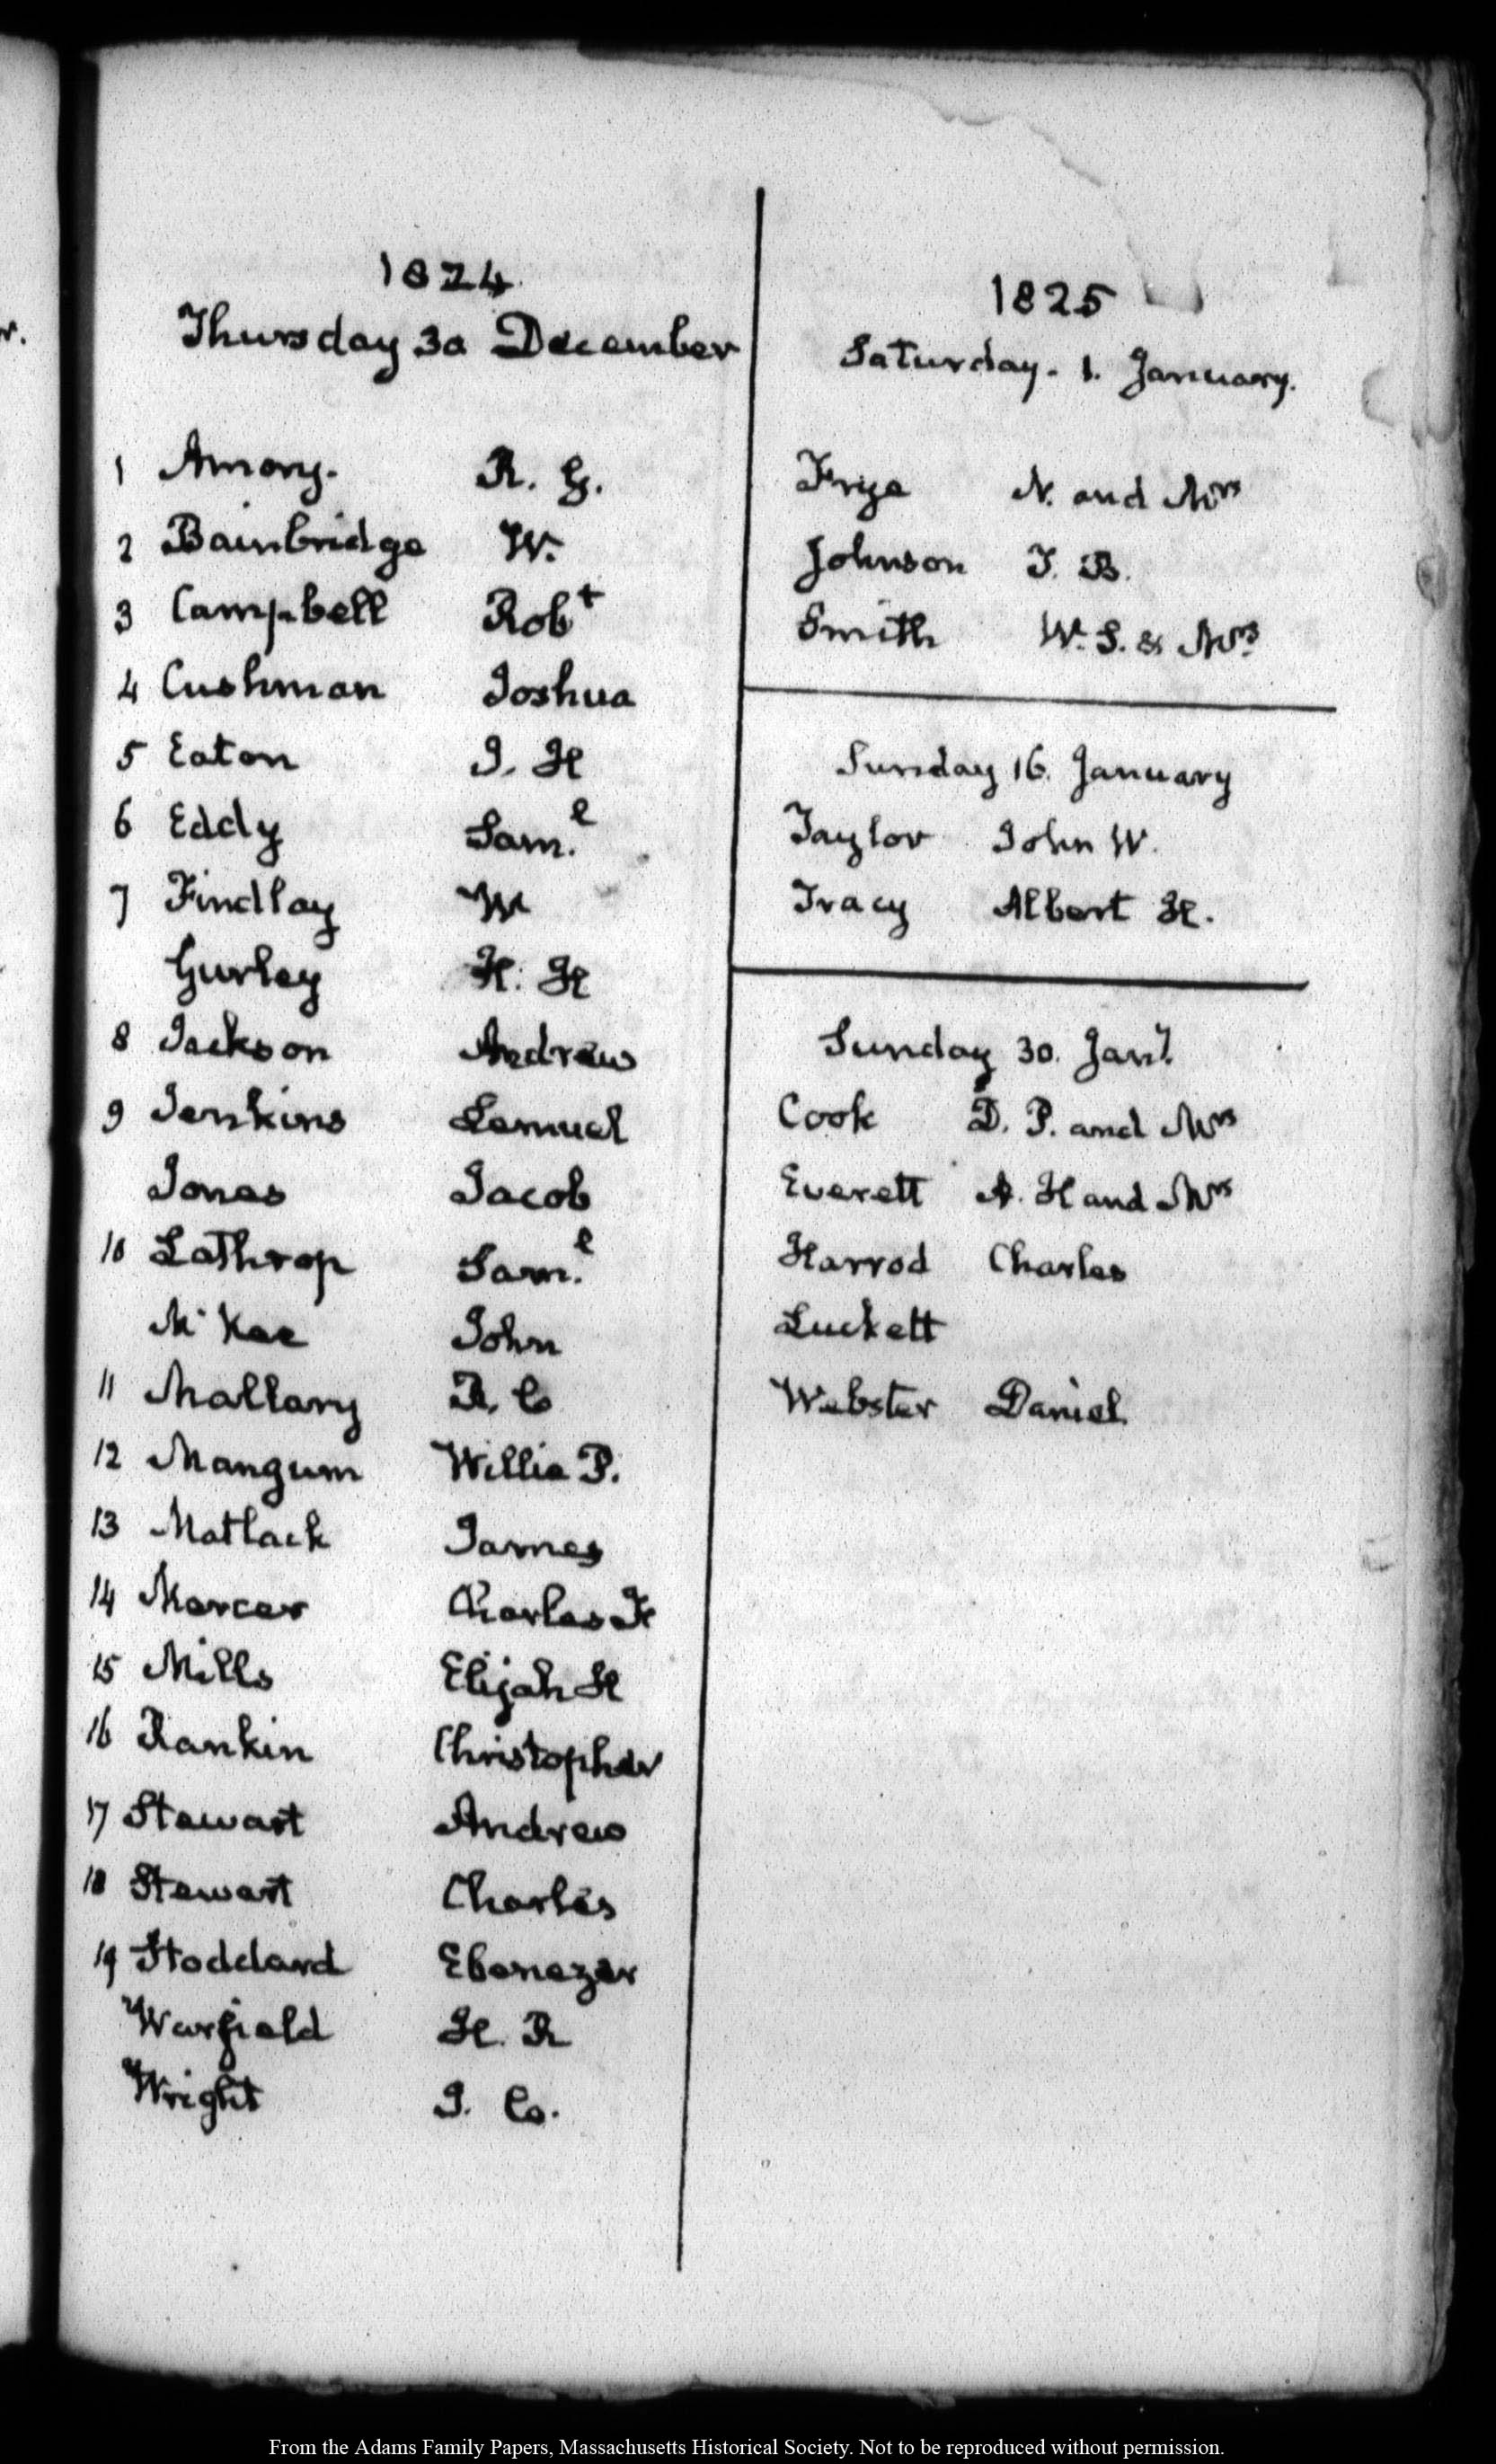 1824
Thursday 30 December
1 Amory. R. G.
2 Bainbridge W.
3 Campbell Robt
4 Cushman Joshua
5 Eaton J. H
6 Eddy Saml.
7 Findlay W
Gurley H. H
8 Jackson Andrew
9 Jenkins Lemuel
Jones Jacob
10 Lathrop Saml.
McKee John
11 Mallary R. C
12 Mangum Willie P.
13 Matlack James
14 Mercer Charles F
15 Mills Elijah H
16 Rankin Christopher
17 Stewart Andrew
18 Stewart Charles
19 Stoddard Ebenezer
Warfield H. R
Wright J. C.
1825
Saturday. 1. January.
Frye N. and Mrs
Johnson T. B.
Smith W. S. & Mrs
Sunday 16. January
Taylor John W.
Tracy Albert H.
Sunday 30. Jany.
Cook D. P. and Mrs
Everett A. H and Mrs
Harrod Charles
Luckett
Webster Daniel
From the Adams Family Papers, Massachusetts Historical Society. Not to be reproduced without permission.